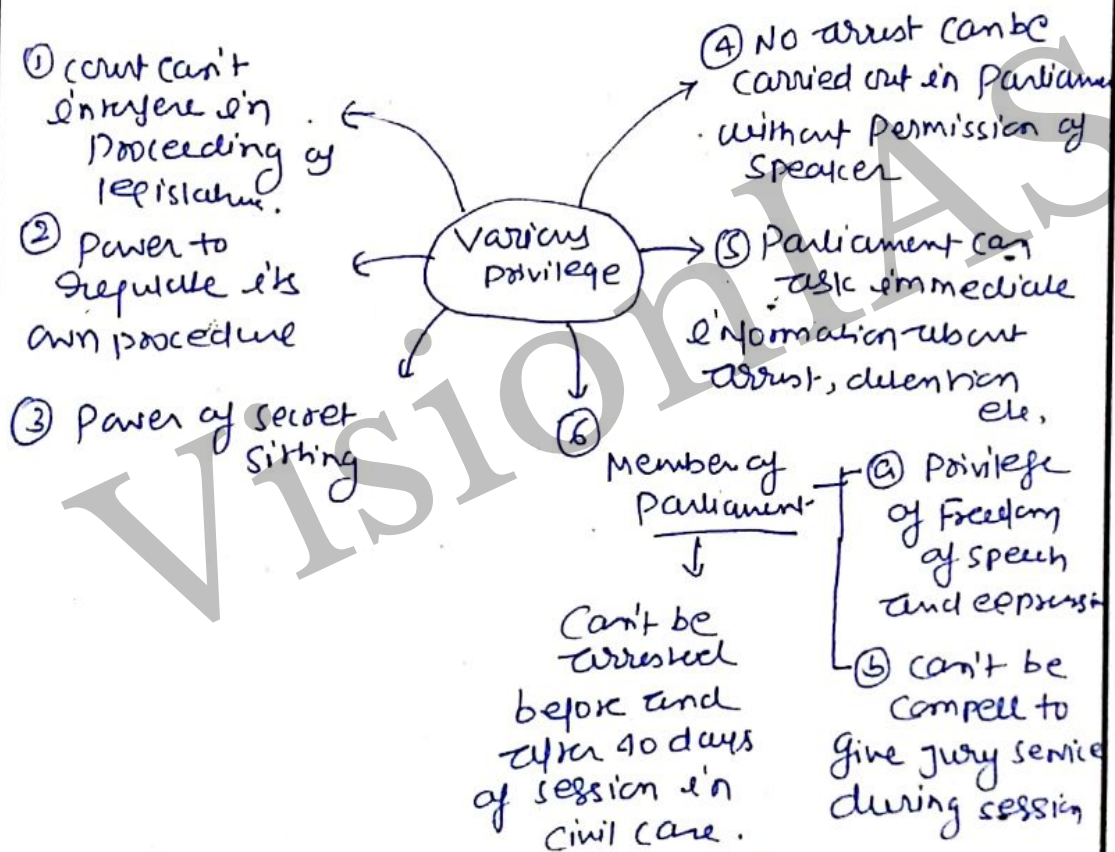 ① court can't
interfere in
proceeding of
legislature.
② power to
regulate its
own procedure
③ Power of secret
sitting
Various
privilege
④ No arrest can be
carried out in Parliame
without Permission of
Speaker
⑤ Parliament can
ask immediate
information about
arrest, detention
etc,
⑥
Member of
Parliament
Can't be
arrested
before and
after 40 days
of session in
civil case.
ⓐ Privilege
of Freedom
of speech
and expressi
ⓑ can't be
compell to
give jury service
during session
VisionIAS